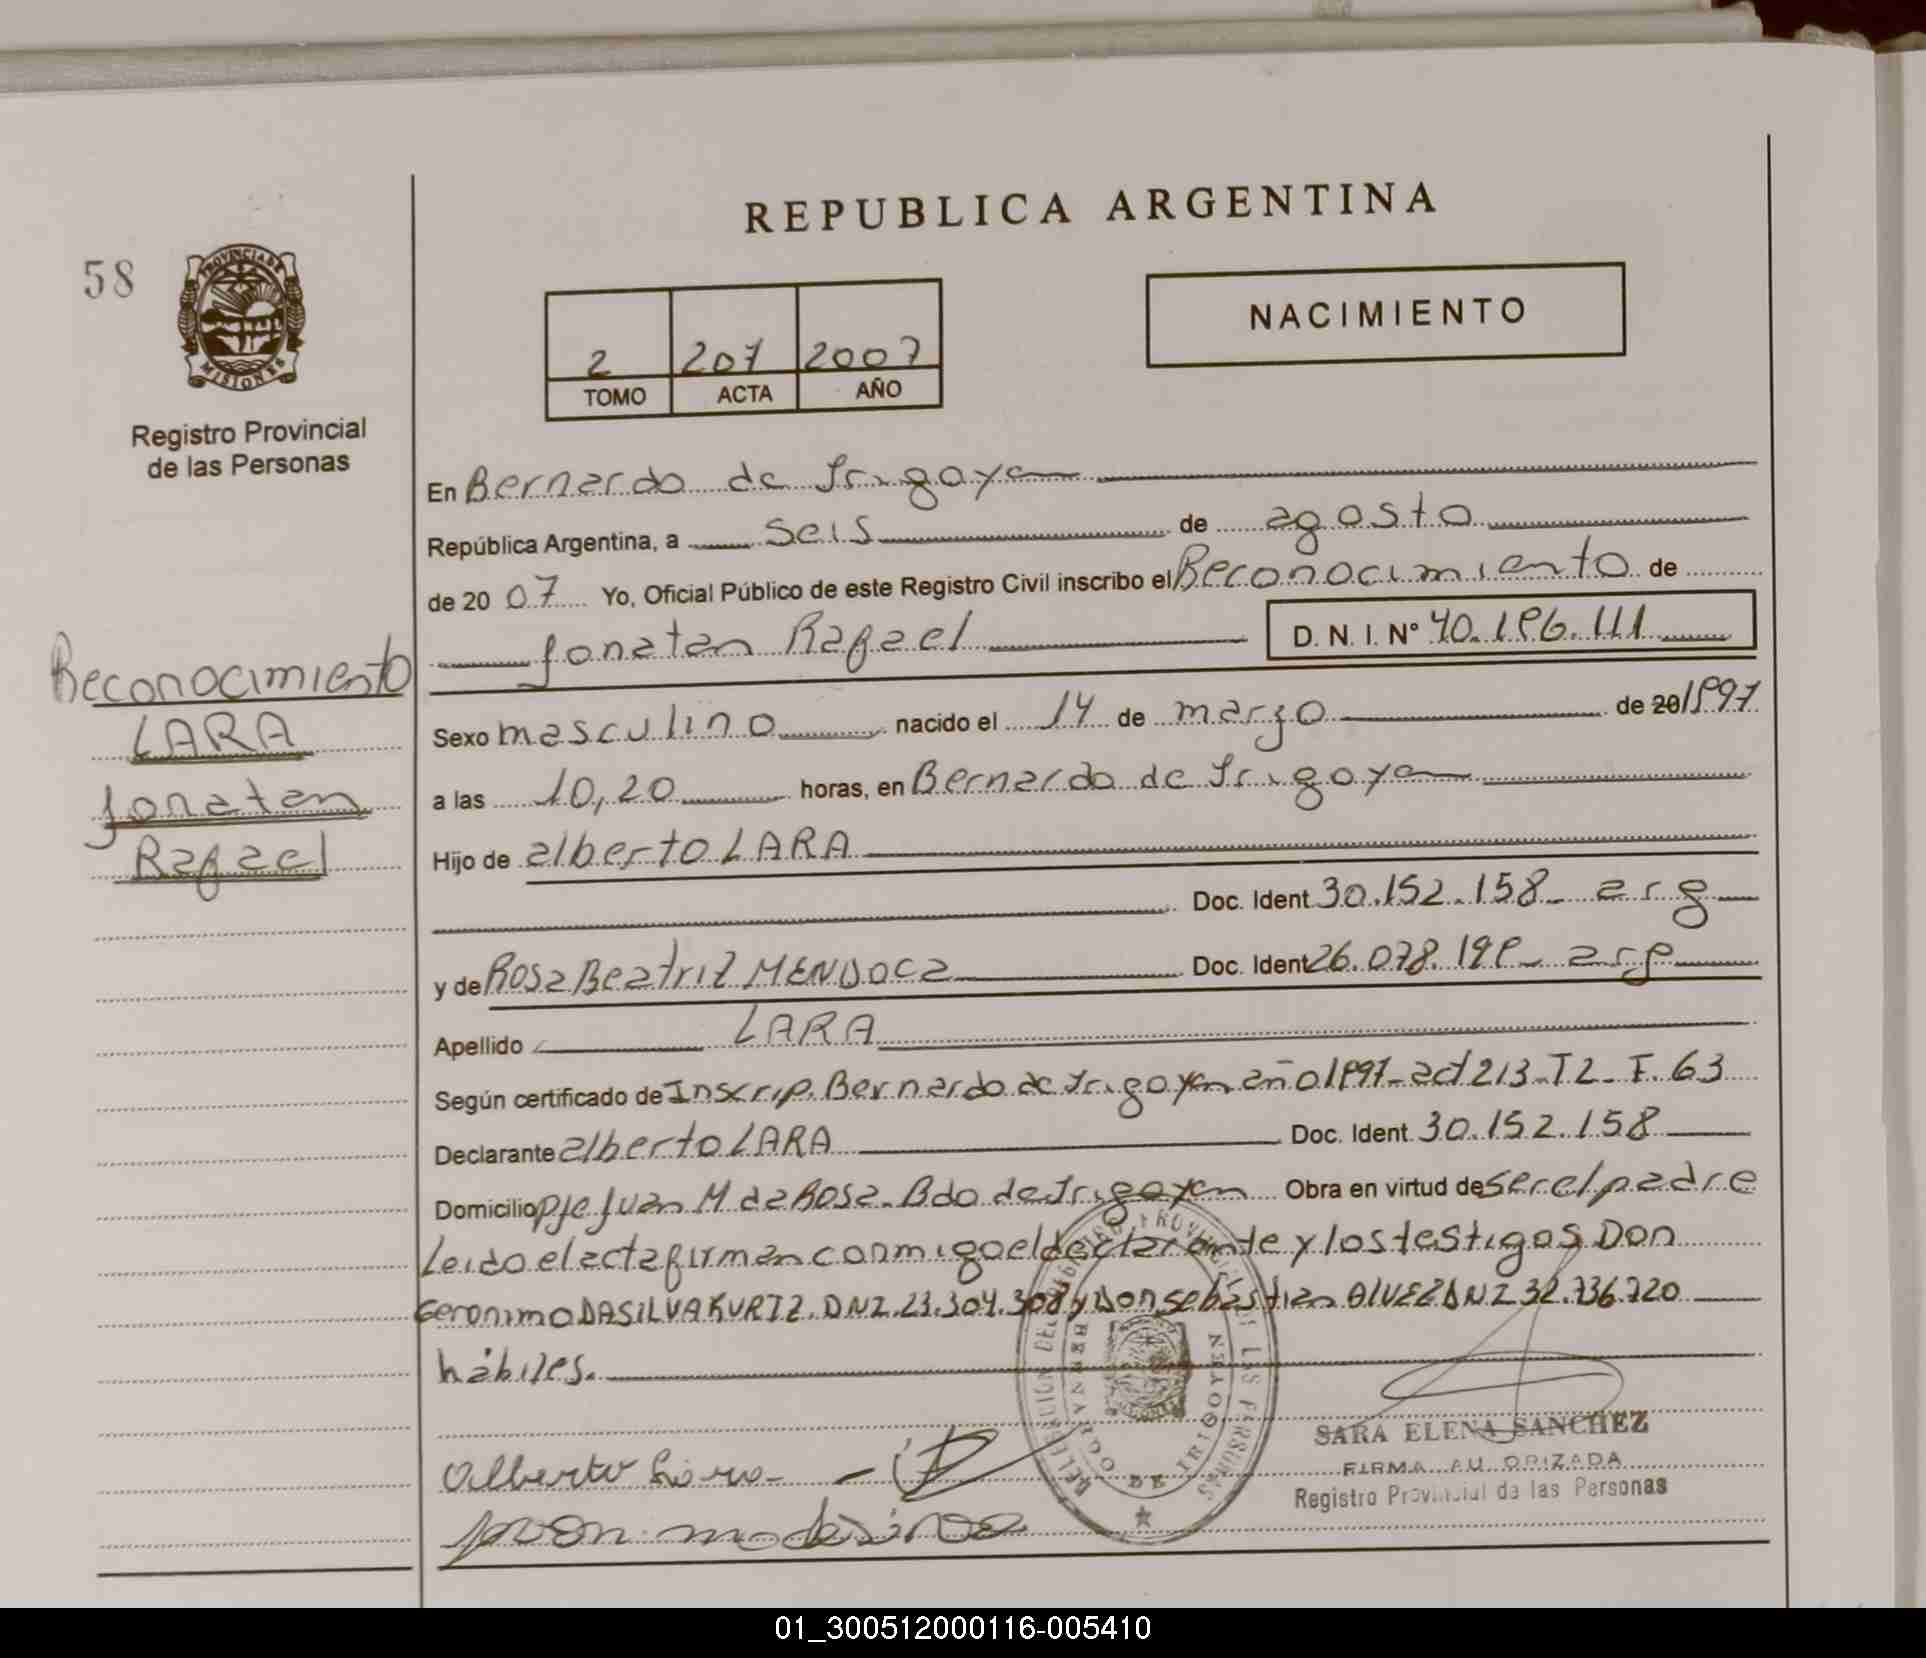 REPUBLICA ARGENTINA
58
PROVINCIA DE
MISIONES
NACIMIENTO
2 207 2007
TOMO ACTA AÑO
Registro Provincial
de las Personas
En Bernardo de Irigoyen
República Argentina, a seis de agosto
de 20 07 Yo, Oficial Público de este Registro Civil inscribo el Reconocimiento de
Jonatan Rafael D. N. I. N° 40.196.111
Reconocimiento
LARA
Jonatan
Rafael
Sexo masculino nacido el 14 de marzo de 20 1997
a las 10,20 horas, en Bernardo de Irigoyen
Hijo de alberto LARA
Doc. Ident 30.152.158_ arg
y de Rosa Beatriz MENDOCa Doc. Ident 26.078.199_ arg
Apellido LARA
Según certificado de Inscrip. Bernardo de Irigoyen año 1997_ act 213_T2_F.63
Declarante alberto LARA Doc. Ident. 30.152.158
Domicilio pje Juan M de Rosa. Bdo de Irigoyen Obra en virtud de ser el padre
Leido el acta firman conmigo el declarante y los testigos Don
Geronimo DASILVA KURTZ. DNI. 23.304.308 y Don sebastian ALVEZ DNI 32.736.720
hábiles.
Alberto Lara
SARA ELENA SANCHEZ
FIRMA AU ORIZADA
Registro Provincial de las Personas
DE IRIGOYEN
01_300512000116-005410